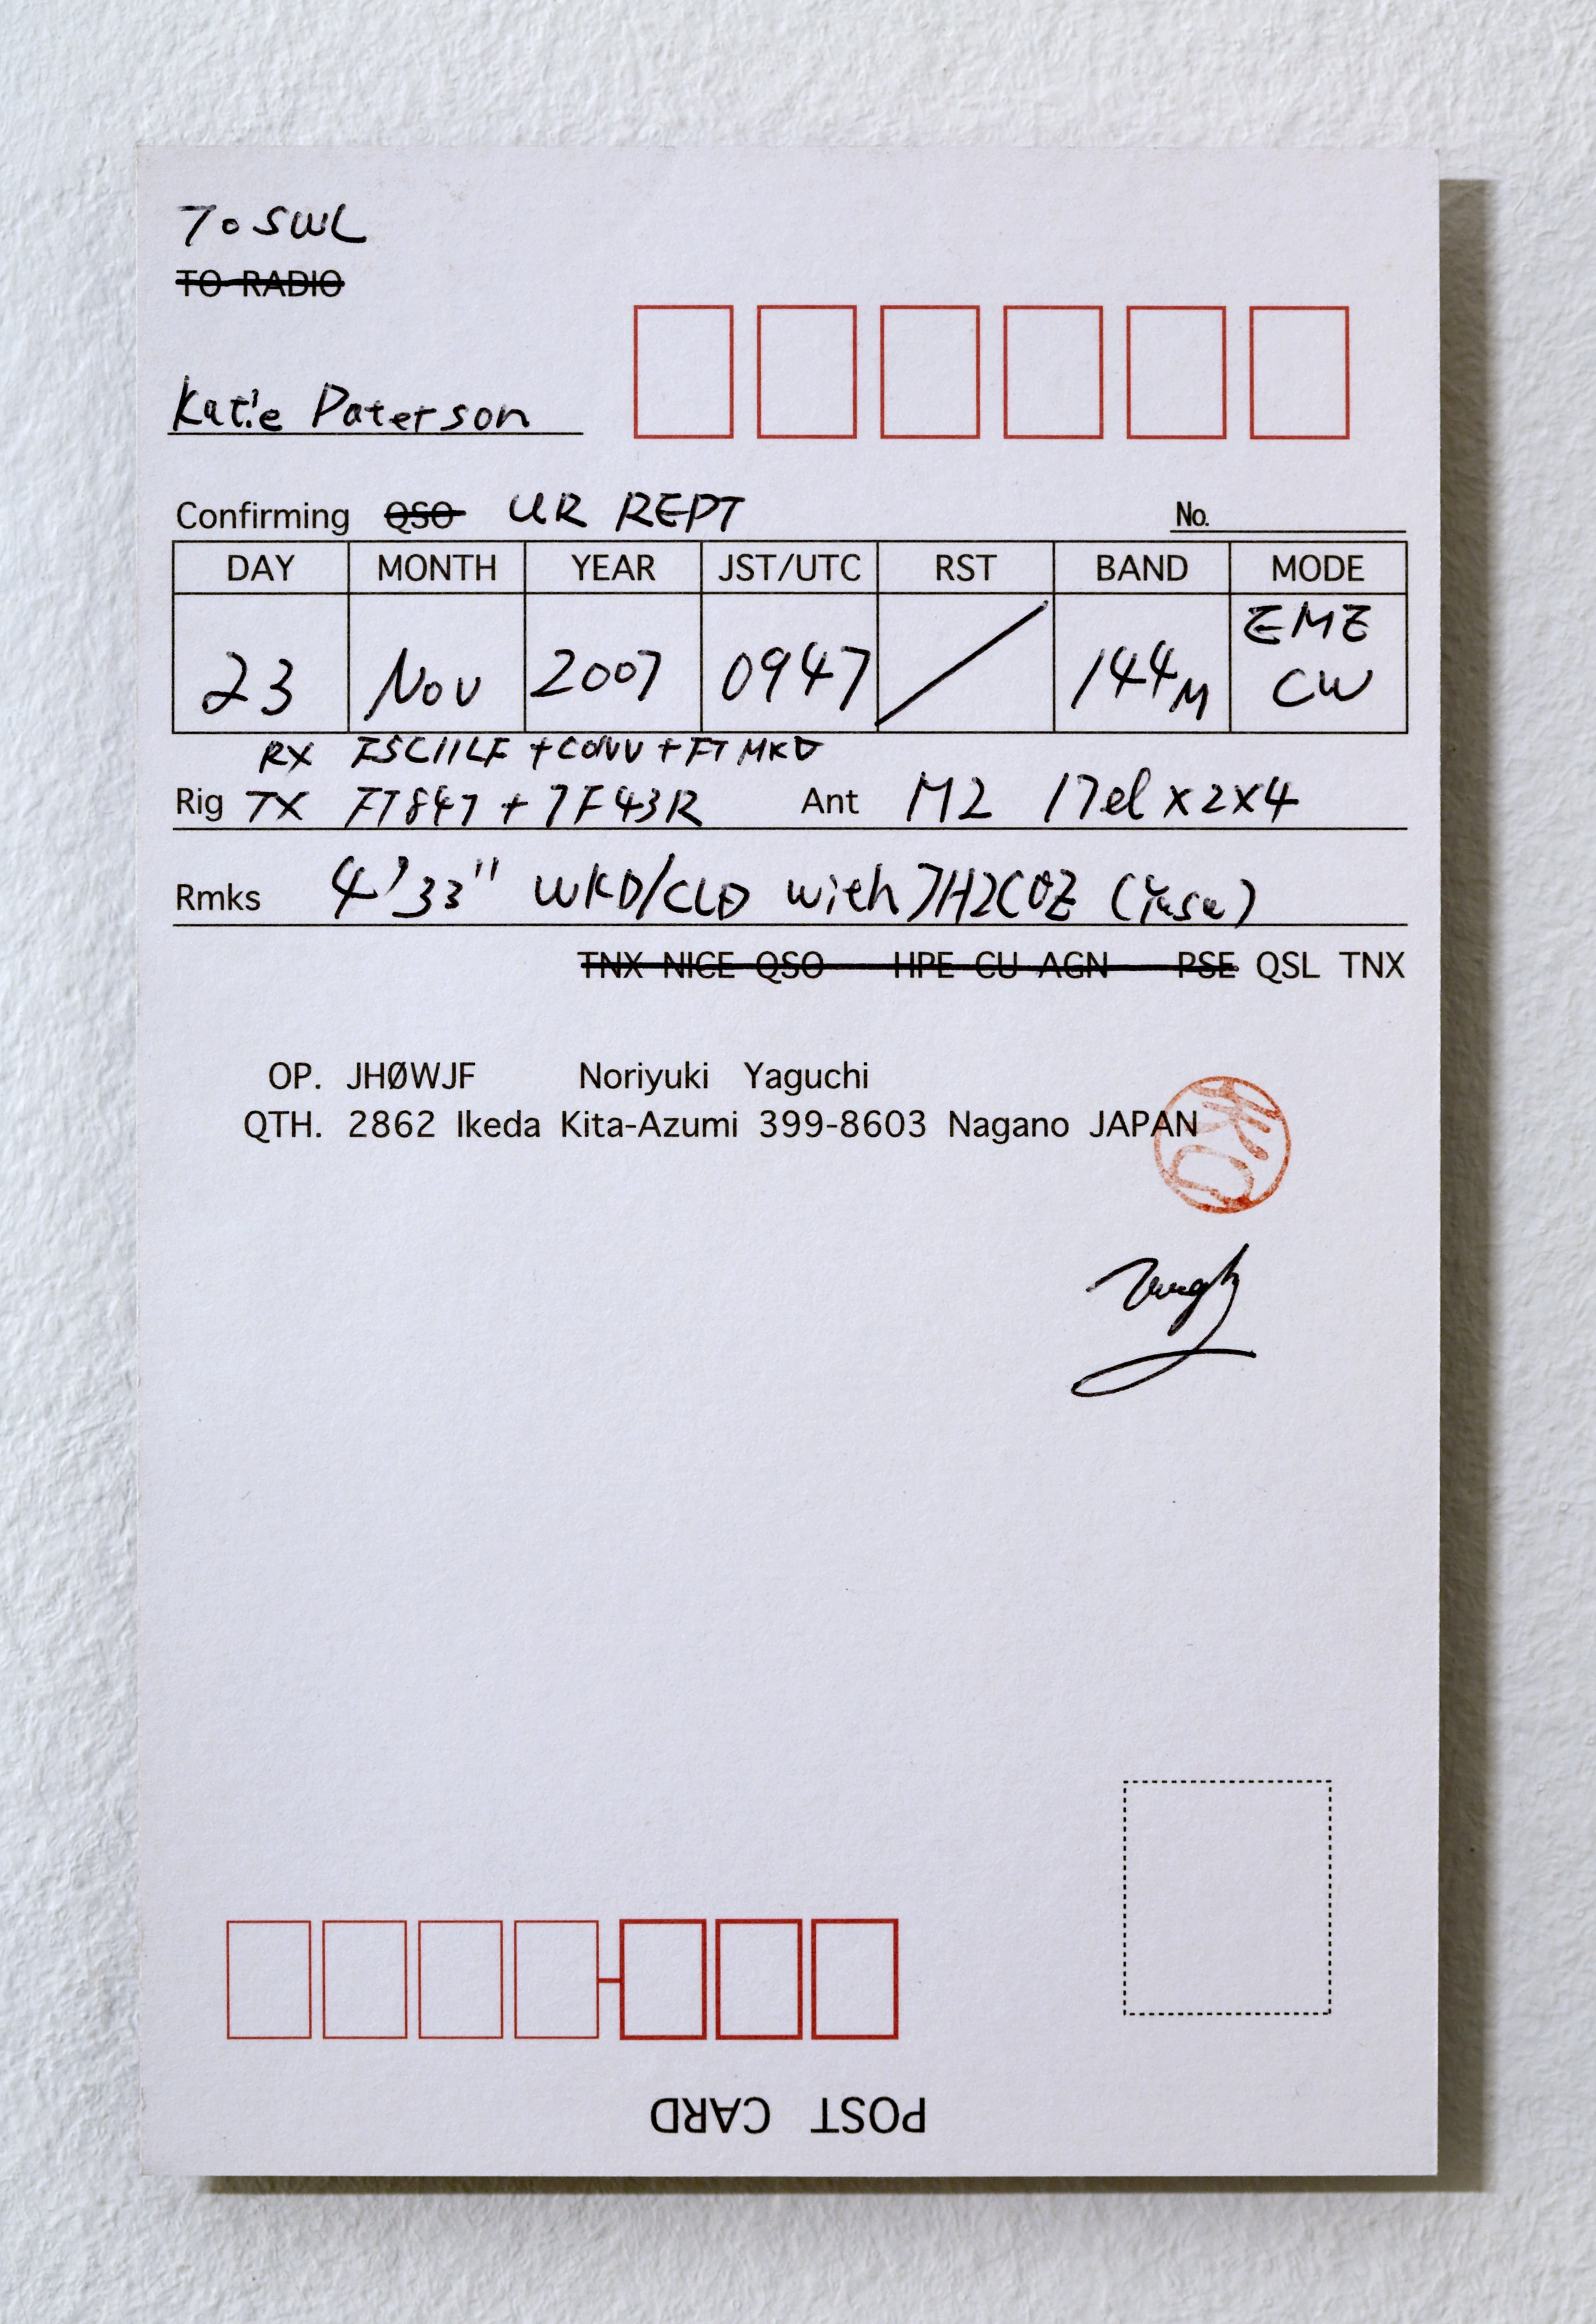 To SWL
TO RADIO
Katie Paterson
Confirming QSO UR REPT No.
DAY MONTH YEAR JST/UTC RST BAND MODE
23 Nov 2007 0947 / 144M EME CW
RX + CONV + FT MKV
Rig TX FT847 + TF43R Ant M2 17el x2x4
Rmks 4'33" WKD/CLD with JH2COZ (Yasu)
TNX NICE QSO HPE CU AGN PSE QSL TNX
OP. JHØWJF Noriyuki Yaguchi
QTH. 2862 Ikeda Kita-Azumi 399-8603 Nagano JAPAN
POST CARD